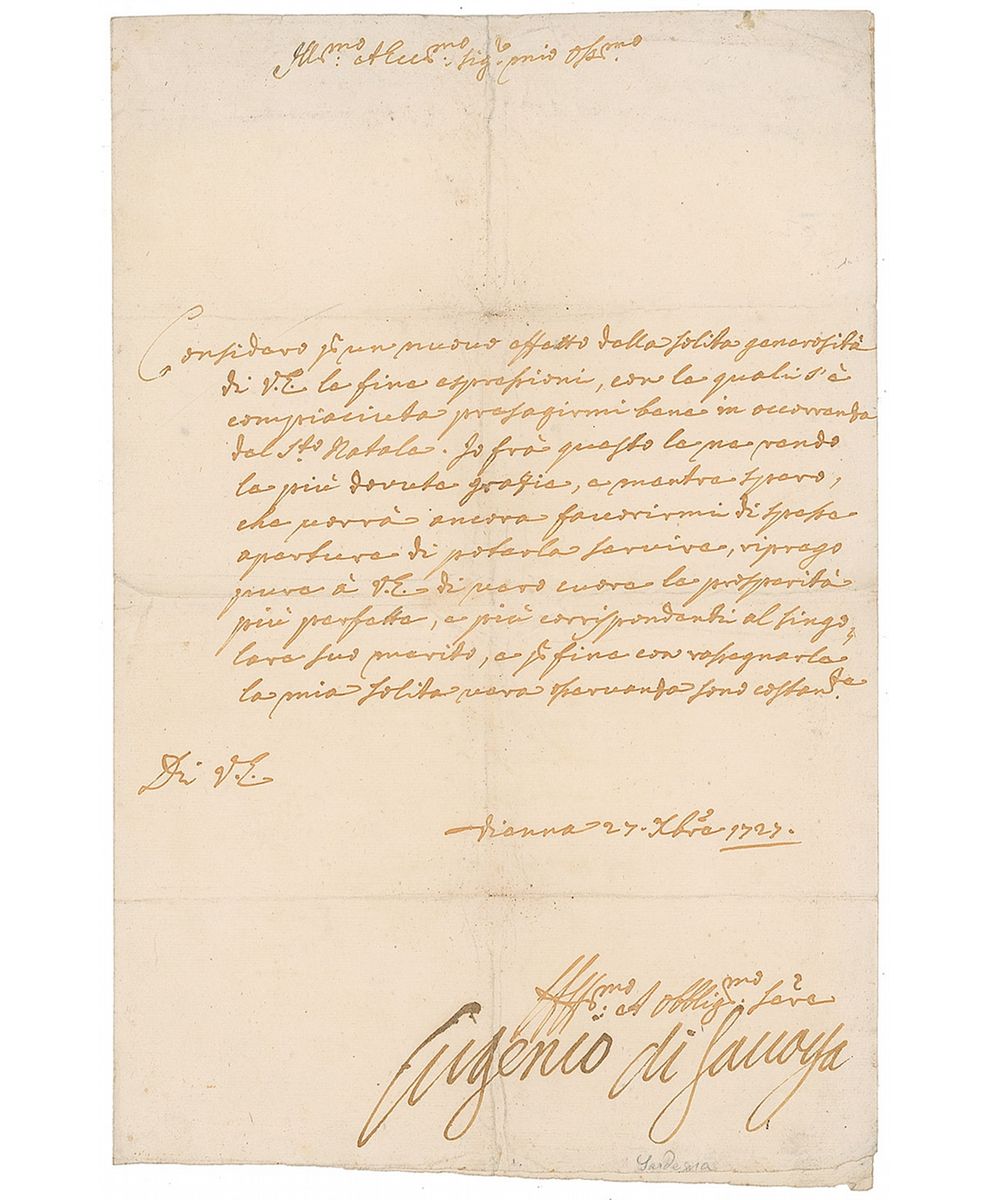 Ill.mo et Ecc.mo Sig.r mio Oss.mo
Considero p un nuovo effetto della solita generosità
di V.E. le fine espressioni, con le quali s'è
compiaciuta presagirmi bene in occorrenza
del S.to Natale. Io frà questo le ne rendo
le più dovute grazie, e mentre spero,
che vorrà ancora favorirmi di spesse
aperture di poterla servire, riprego
pure à V.E. di vero cuore le prosperità
più perfette, e più corrispondenti al singo=
lare suo merito, e p fine con rassegnarle
la mia solita vera osservanza sono costan.te
Di V.E.
Vienna 27. Xbre 1727.
Aff.mo et obblig.mo Ser.re
Eugenio di Savoya
Sardegna